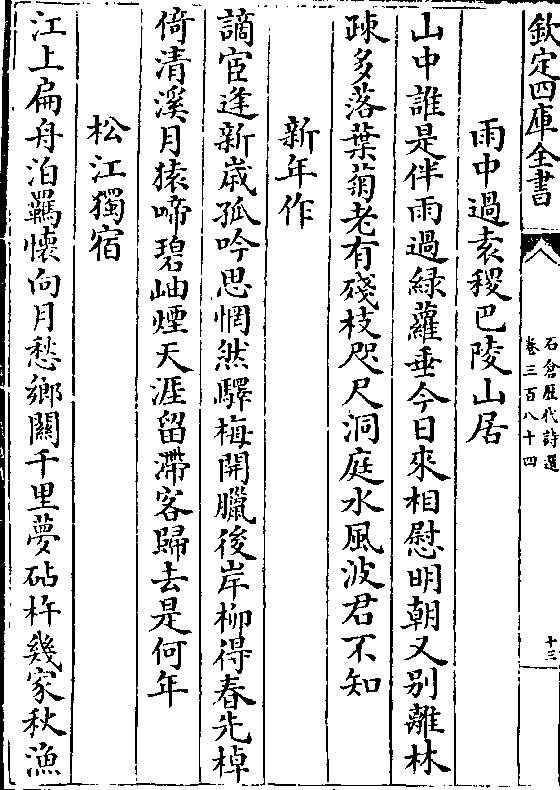 欽定四庫全書
石倉歷代詩選
卷三百八十四
十三
雨中過袁稷巴陵山居
山中誰是伴雨過綠蘿垂今日來相慰明朝又別離林
踈多落葉菊老有殘枝咫尺洞庭水風波君不知
新年作
謫宦逢新歳孤吟思惘然驛梅開臘後岸柳得春先棹
倚清溪月猿啼碧岫煙天涯留滯客歸去是何年
松江獨宿
江上扁舟泊羈懷向月愁鄉關千里夢砧杵幾家秋漁